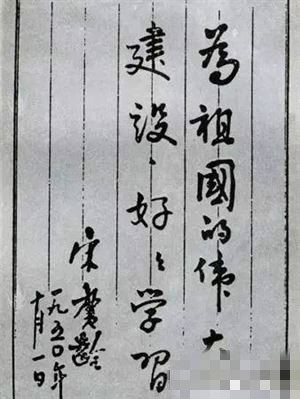 為祖國的伟大
建設、好好学習
宋慶齡
一九五〇年
十月一日